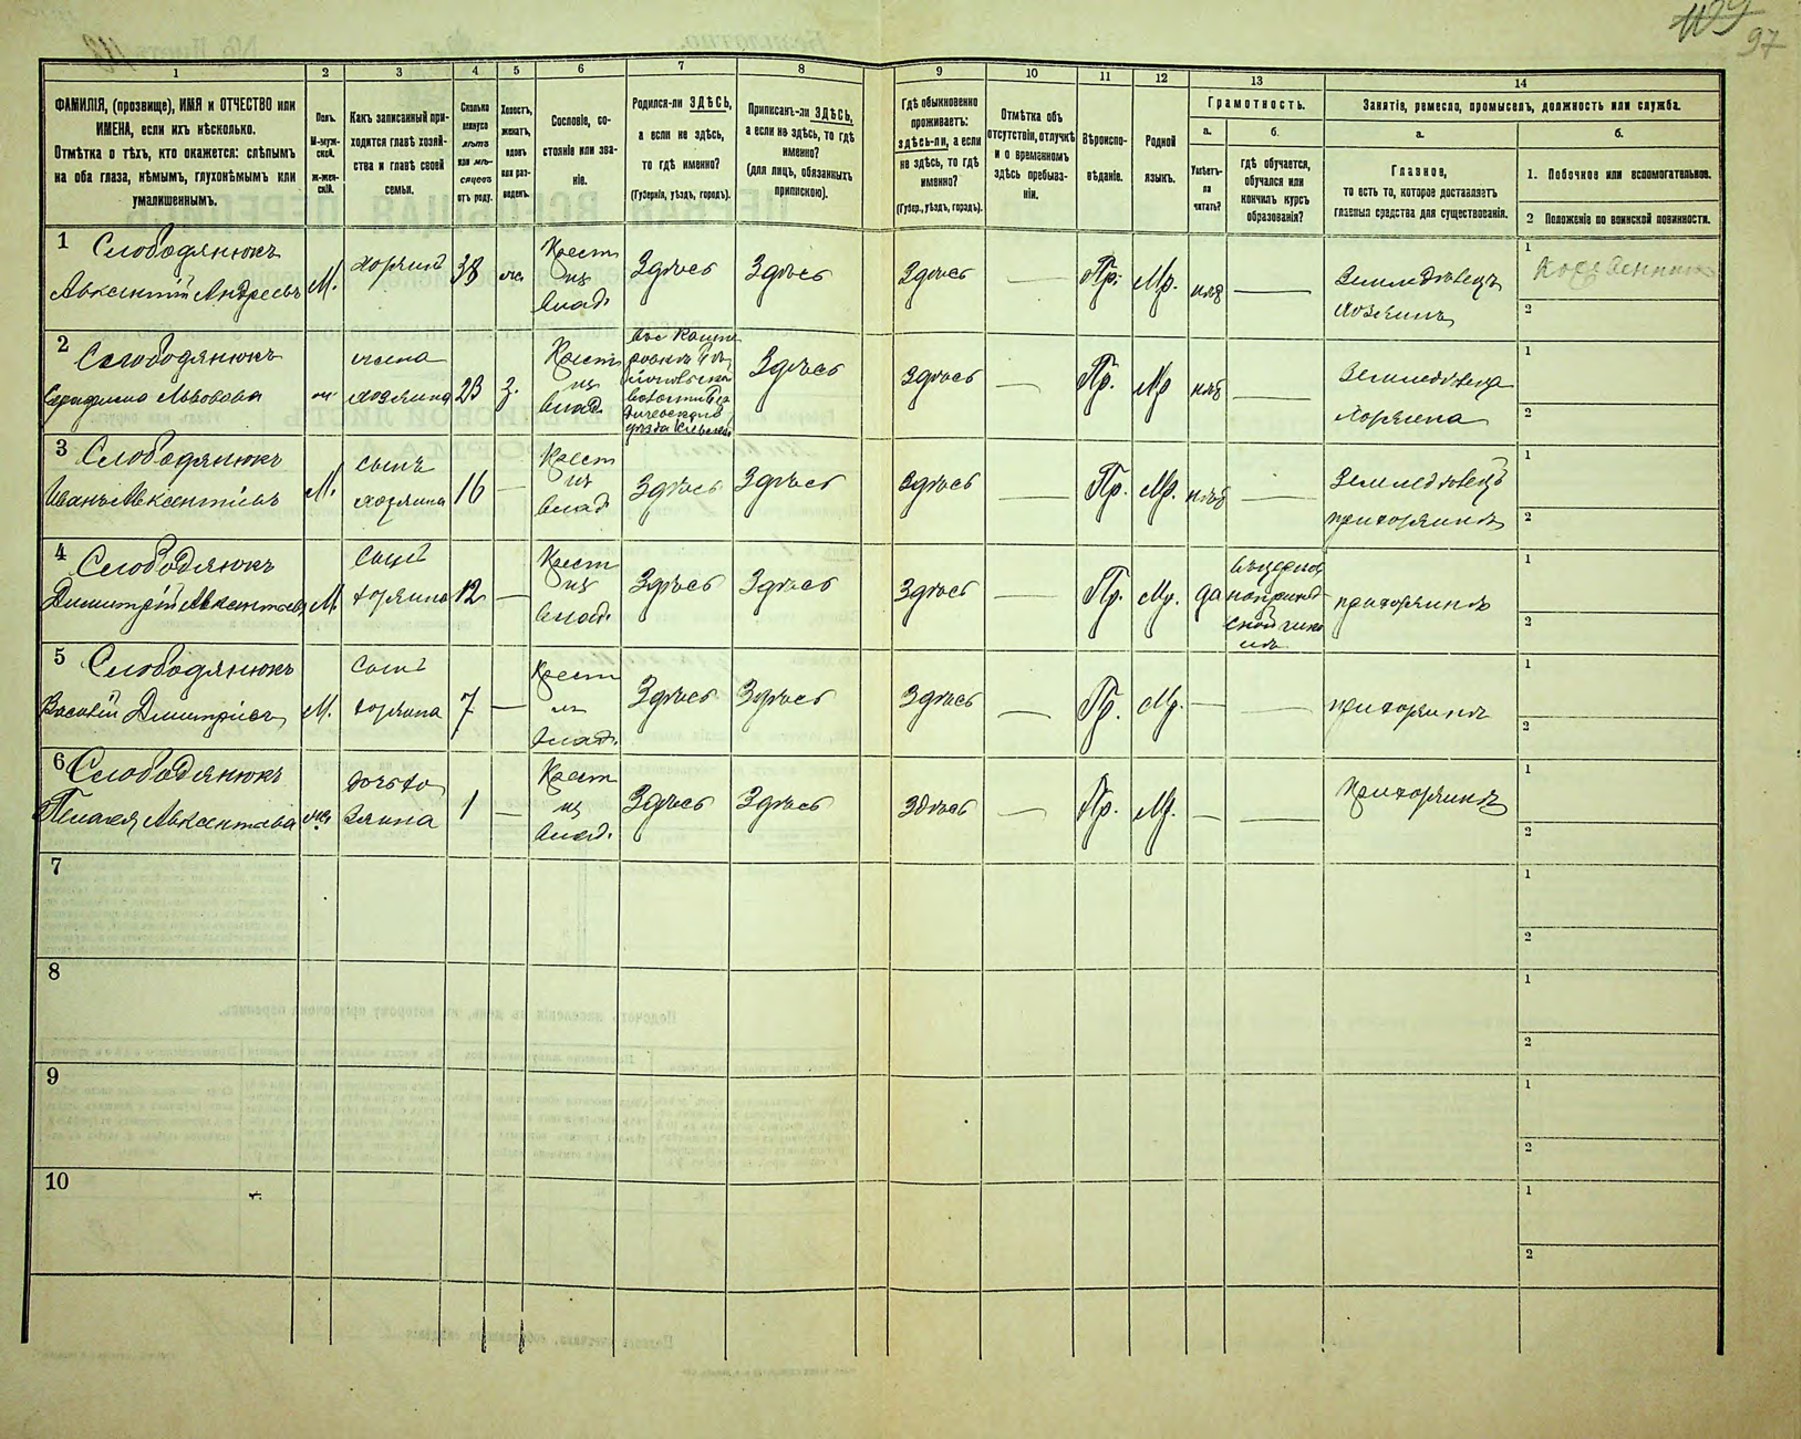 109
97
1
2
3
4
5
6
7
8
9
10
11
12
13
14
ФАМИЛІЯ, (прозвище), ИМЯ и ОТЧЕСТВО или
ИМЕНА, если ихъ нѣсколько.
Отмѣтка о тѣхъ, кто окажется: слѣпымъ
на оба глаза, нѣмымъ, глухонѣмымъ или
умалишеннымъ.
Полъ.
М-муж-
ской.
ж-жен-
скій.
Какъ записанный при-
ходится главѣ хозяй-
ства и главѣ своей
семьи.
Сколько
минуло
лѣтъ
или мѣ-
сяцевъ
отъ роду.
Холостъ,
женатъ,
вдовъ
или раз-
веденъ.
Сословіе, со-
стояніе или зва-
ніе.
Родился-ли ЗДѢСЬ,
а если не здѣсь,
то гдѣ именно?
(Губернія, уѣздъ, городъ).
Приписанъ-ли ЗДѢСЬ,
а если не здѣсь, то гдѣ
именно?
(для лицъ, обязанныхъ
припискою).
Гдѣ обыкновенно
проживаетъ:
здѣсь-ли, а если
не здѣсь, то гдѣ
именно?
(Губер., уѣздъ, городъ).
Отмѣтка объ
отсутствіи, отлучкѣ
и о временномъ
здѣсь пребыва-
ніи.
Вѣроиспо-
вѣданіе.
Родной
языкъ.
Грамотность.
а.
б.
Умѣетъ-
ли
читать?
гдѣ обучается,
обучался или
кончилъ курсъ
образованія?
Занятія, ремесло, промыселъ, должность или служба.
а.
б.
Главное,
то есть то, которое доставляетъ
главныя средства для существованія.
1. Побочное или вспомогательное.
2 Положеніе по воинской повинности.
1 Слободянюкъ
Авксентій Андреевъ
М.
хозяинъ
38
Крест
из
влад.
Здѣсь
Здѣсь
Здѣсь
Пр.
Мр.
нѣт
Земледѣлецъ
хозяинъ
1
2
2 Слободянюкъ
Серафима Львовова
жена
хозяина
23
з.
Крест
из
влад.
уѣзда
Здѣсь
Здѣсь
Пр.
Мр
нѣт
хозяина
1
2
3 Слободянюкъ
Иванъ Авксентіевъ
М.
сынъ
хозяина
16
Крест
из
влад
Здѣсь
Здѣсь
Здѣсь
Пр.
Мр.
нѣт
Земледѣлецъ
при хозяинѣ
1
2
4 Слободянюкъ
Димитрій Авксентьевъ
М.
сынъ
хозяина
12
Крест
из
влад.
Здѣсь
Здѣсь
Здѣсь
Пр.
Мр.
да
при хозяинѣ
1
2
5 Слободянюкъ
Василій Димитріевъ
М.
сынъ
хозяина
7
Крест
из
влад.
Здѣсь
Здѣсь
Здѣсь
Пр.
Мр.
при хозяинѣ
1
2
6 Слободянюкъ
Пелагея Авксентьева
дочь хо
зяина
1
Крест
из
влад.
Здѣсь
Здѣсь
Здѣсь
Пр.
Мр.
при хозяинѣ
1
2
7
1
2
8
1
2
9
1
2
10
1
2